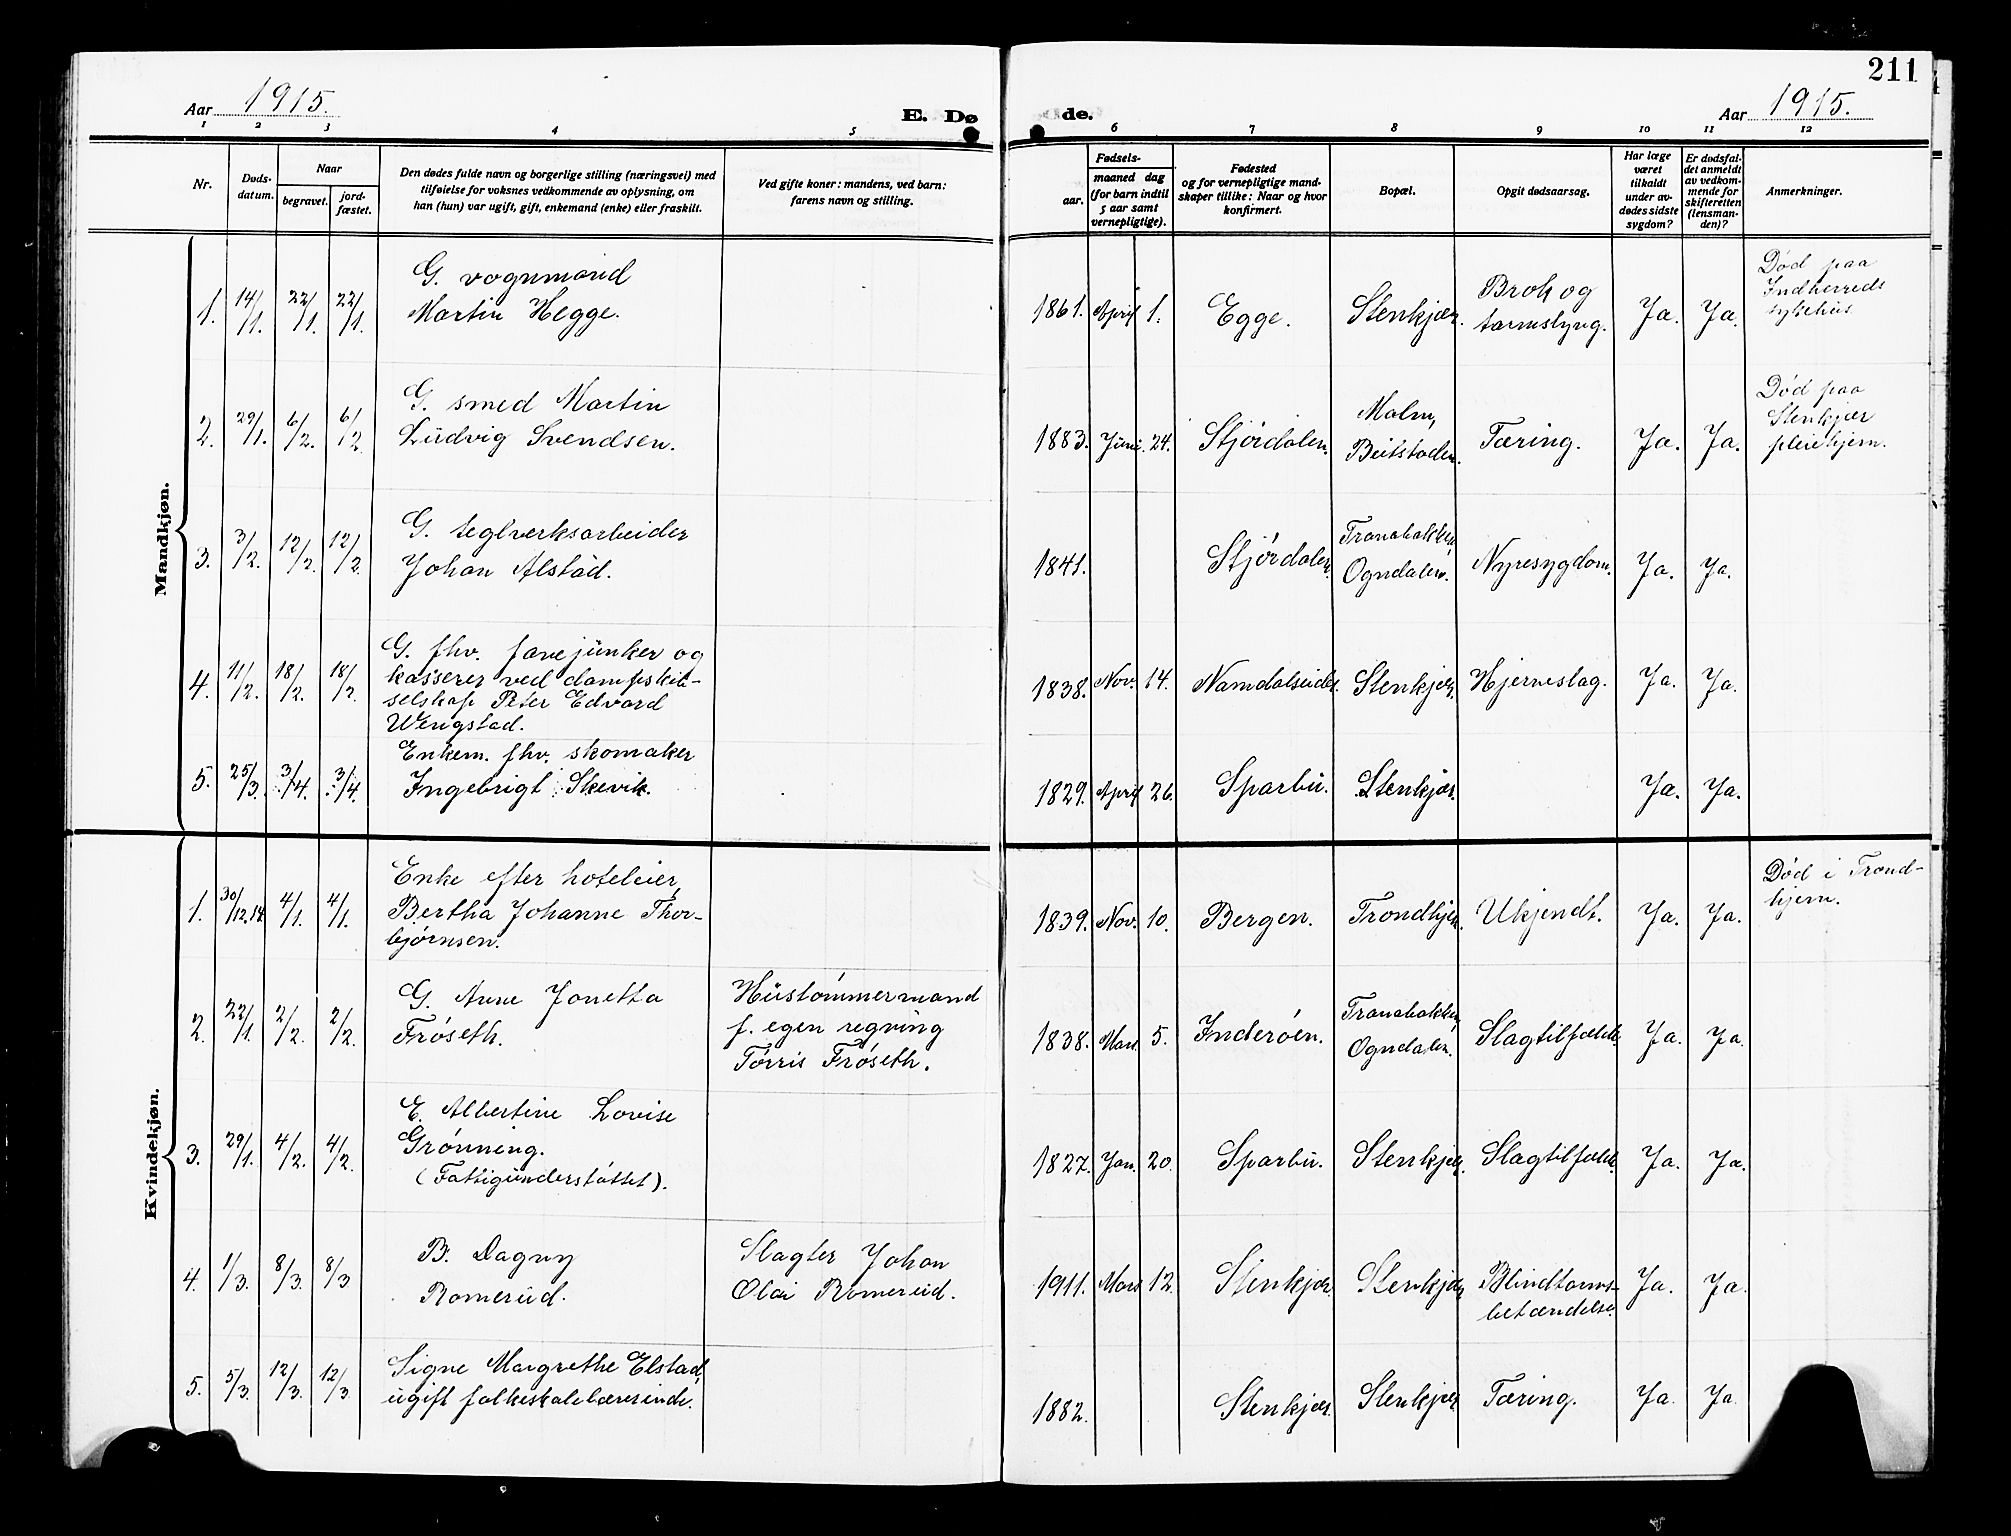 211
Aar 1915.
E. Dø
de.
Aar 1915.
1 2 3 4 5
6 7 8 9 10 11 12
Nr.
Døds-
datum.
Naar
begravet.
jord-
fæstet.
Den dødes fulde navn og borgerlige stilling (næringsvei) med
tilføielse for voksnes vedkommende av oplysning, om
han (hun) var ugift, gift, enkemand (enke) eller fraskilt.
Ved gifte koner: mandens, ved barn:
farens navn og stilling.
Fødsels-
aar.
maaned dag
(for barn indtil
5 aar samt
vernepligtige).
Fødested
og for vernepligtige mand-
skaper tillike: Naar og hvor
konfirmert.
Bopæl.
Opgit dødsaarsag.
Har læge
været
tilkaldt
under av-
dødes sidste
sygdom?
Er dødsfal-
det anmeldt
av vedkom-
mende for
skifteretten
(lensman-
den)?
Anmerkninger.
Mandkjøn.
1. 14/1. 22/1. 22/1.
G. vognmand
Martin Hegge.
1861. April 1. Egge. Stenkjær.
Brok og
tarmslyng.
Ja. Ja.
Død paa
Indherreds
sykehus
2. 29/1. 6/2. 6/2.
G. smed Martin
Ludvig Svendsen.
1883. Juni. 24. Stjørdalen.
Malm,
Beitstaden.
Tæring. Ja. Ja.
Død paa
Stenkjær
pleiehjem.
3. 3/2. 12/2. 12/2.
G. teglverksarbeider
Johan Alstad.
1841. Stjørdalen.
Tranabakken,
Ogndalen.
Nyresygdom. Ja. Ja.
4. 11/2. 18/2. 18/2.
G. fhv. fanejunker og
kasserer ved dampskib-
selskap Peter Edvard
Wengstad.
1838. Nov. 14. Namdalseidet. Stenkjær. Hjerneslag. Ja. Ja.
5. 25/3. 3/4. 3/4.
Enkem. fhv. skomaker
Ingebrigt Skevik.
1829. April 26. Sparbu. Stenkjær. Ja. Ja.
Kvindekjøn.
1. 30/12.14 4/1. 4/1.
Enke efter hoteleier,
Bertha Johanne Thor-
bjørnsen.
1839. Nov. 10. Bergen. Trondhjem. Ukjendt. Ja. Ja.
Død i Trond-
hjem.
2. 22/1. 2/2. 2/2.
G. Anne Jonetta
Frøseth.
Hustømmermand
f. egen regning
Tørris Frøseth.
1838. Mars. 5. Inderøen.
Tranabakken,
Ogndalen.
Slagtilfælde. Ja. Ja.
3. 29/1. 4/2. 4/2.
E. Albertine Lovise
Grønning.
(Fattigunderstøttet).
1827. Jan. 20. Sparbu. Stenkjær. Slagtilfælde. Ja. Ja.
4. 1/3. 8/3. 8/3
B. Dagny
Romerud.
Slagter Johan
Olai Romerud.
1911. Mars 12. Stenkjær. Stenkjær.
Blindtarms-
betændelse.
Ja. Ja.
5. 5/3. 12/3. 12/3
Signe Margrethe Elstad,
ugift folkeskolelærerinde.
1882. Stenkjær. Stenkjær. Tæring. Ja. Ja